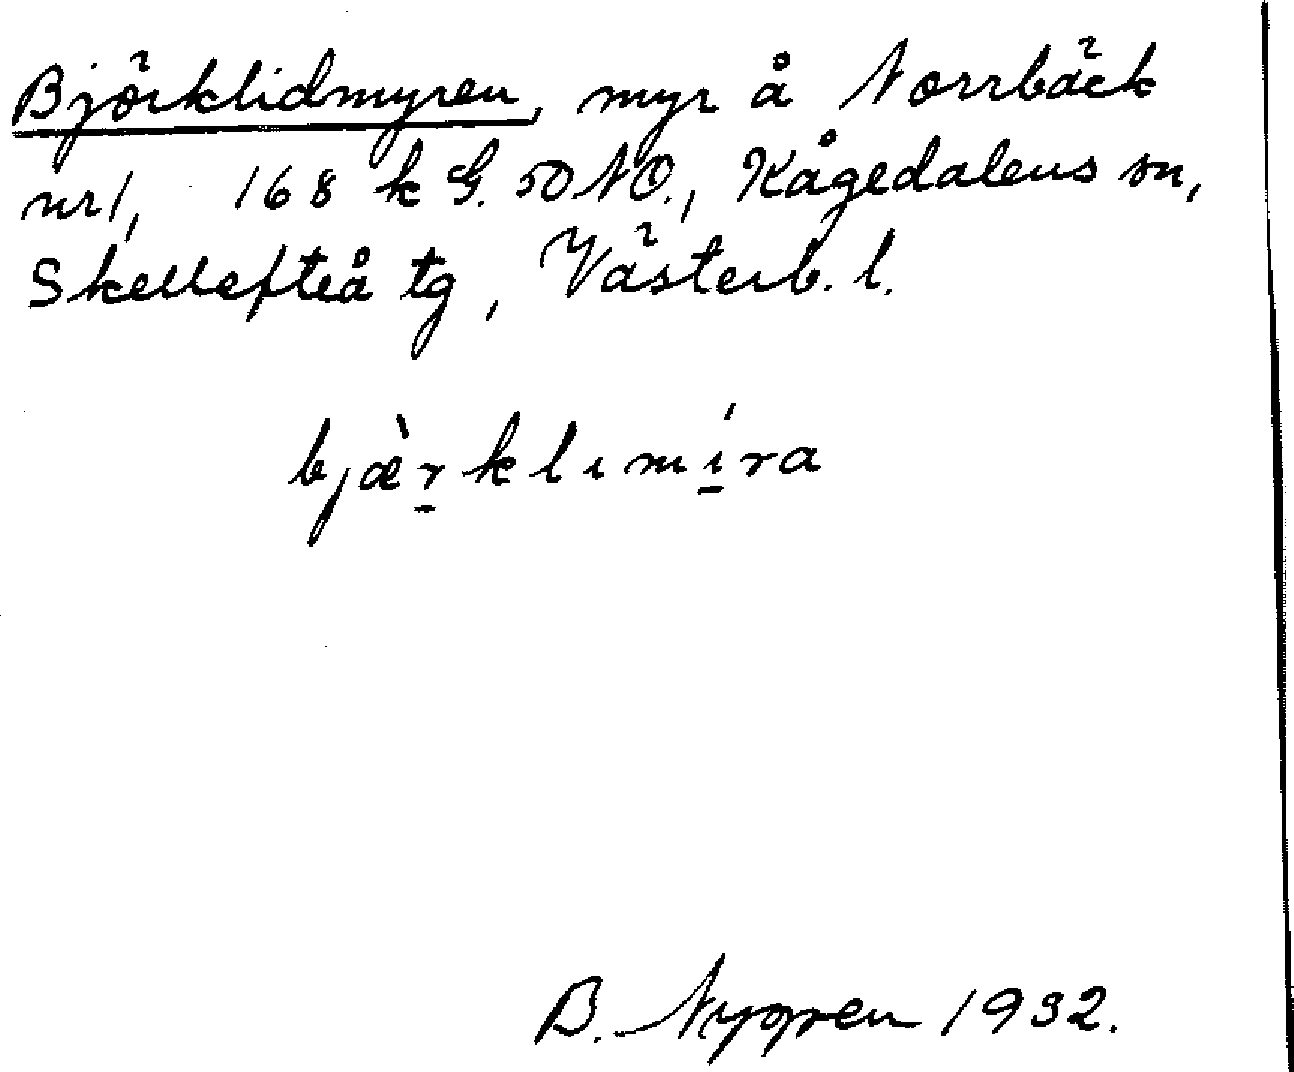 Björklidmyren, myr å Norrbäck
nr 1, 168 k G. 50 NO., Kågedalens sn,
Skellefteå tg, Västerb. l.
bjæ̀r̠klımí̠ra
B. Nygren 1932.